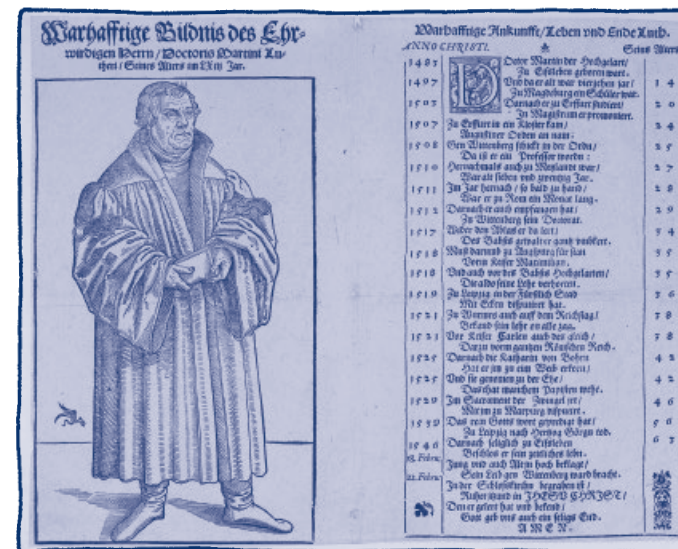 Warhafftige Bildnis des Ehr-
wirdigen Herrn / Doctoris Martini Lu-
theri / Seines Alters im LXiij Jar.
Warhafftige Ankunfft / Leben vnd Ende Luth.
ANNO CHRISTI. Seins Alters
1483 Doctor Martin der Hochgelart /
Zu Eissleben geboren wart.
1497 Vnd da er alt war vierzehen jar / 14
Zu Magdeburg ein Schüler war.
1503 Darnach er zu Erffurt studiert / 20
In Magistrum er promouiert.
1507 Zu Erffurt in ein Kloster kam / 24
Augustiner Orden an nam.
1508 Gen Wittenberg schickt in der Ordn / 25
Da ist er ein Professor wordn :
1510 Hernachmals auch zu Meylandt war / 27
War alt sieben vnd zwentzig Jar.
1511 Im Jar hernach / so bald zu hand / 28
War er zu Rom ein Monat lang.
1512 Darnach er auch empfangen hat / 29
Zu Wittenberg sein Doctorat.
1517 Wider den Ablas er da leit / 34
Des Babsts gewalt er gantz
1518 Must darumb zu Augspurg für stan 35
Vorm Keiser Maximilian.
1518 Vnd auch vor des Babsts Hochgelarten / 35
Die aldo seine Lehr verhorten.
1519 Zu Leipzig in der Fürstlich Stad 36
Mit Ecken disputiert hat.
1521 Zu Wormes auch auff dem Reichstag / 38
Bekand sein lehr on alle zag.
1521 Vor Keiser Carlen auch des gleich / 38
Darzu vorm gantzen Römischen Reich.
1525 Darnach die Katharin von Bohrn 42
Hat er jm zu eim Weib erkorn /
1525 Vnd sie genomen zu der Ehe / 42
Das that manchem Papisten wehe.
1529 Im Sacrament der Zwingel jrt / 46
Mit jm zu Marpurg disputirt.
1539 Das rein Gotts wort gepredigt hat / 56
Zu Leipzig nach Hertzog Görgn tod.
1546 Darnach seliglich zu Eissleben 63
18. Febru. Beschlos er sein zeitliches lebn.
Jung vnd auch Alt jn hoch beklagt /
22. Febru. Sein Leib gen Wittenberg ward bracht.
In der Schlosskirchn begraben ist /
Ruhet itzund in JHESU CHRIST /
Den er gelert hat vnd bekend /
Gott geb vns auch ein seligs End.
AMEN.